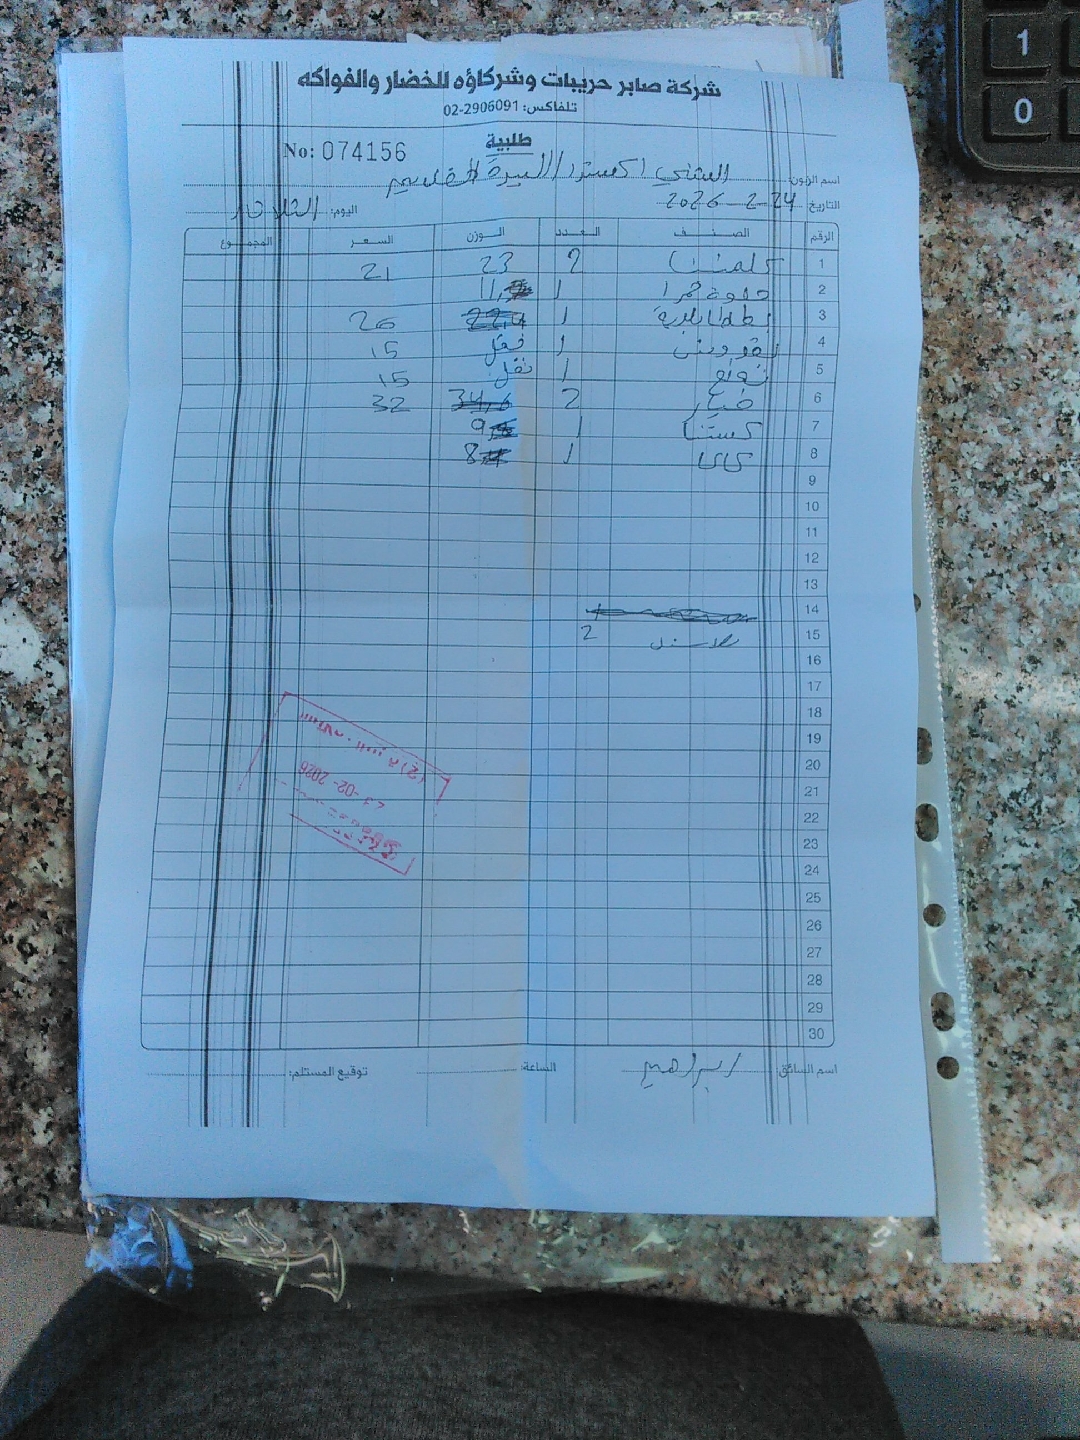 شركة صابر حريبات وشركاؤه للخضار والفواكه
تلفاكس: 02-2906091
طلبية
No: 074156
اسم الزبون: الشني اكسترا / البيرة القديم
التاريخ: 24-2-2026 اليوم: الثلاثاء
الرقم الصنف العدد الوزن السعر المجموع
1 كلمنتينا 2 23 21
2 1 11
3 بطاطا 1 26
4 1 نقل 15
5 1 نقل 15
6 خيار 2 34,6 32
7 كستنا 1 9
8 كاكا 1 8
9
10
11
12
13
14
15 2
16
17
18
19
20
21
22
23
24
25
26
27
28
29
30
اسم السائق: ابراهيم الساعة: توقيع المستلم:
-02-2026
1
0